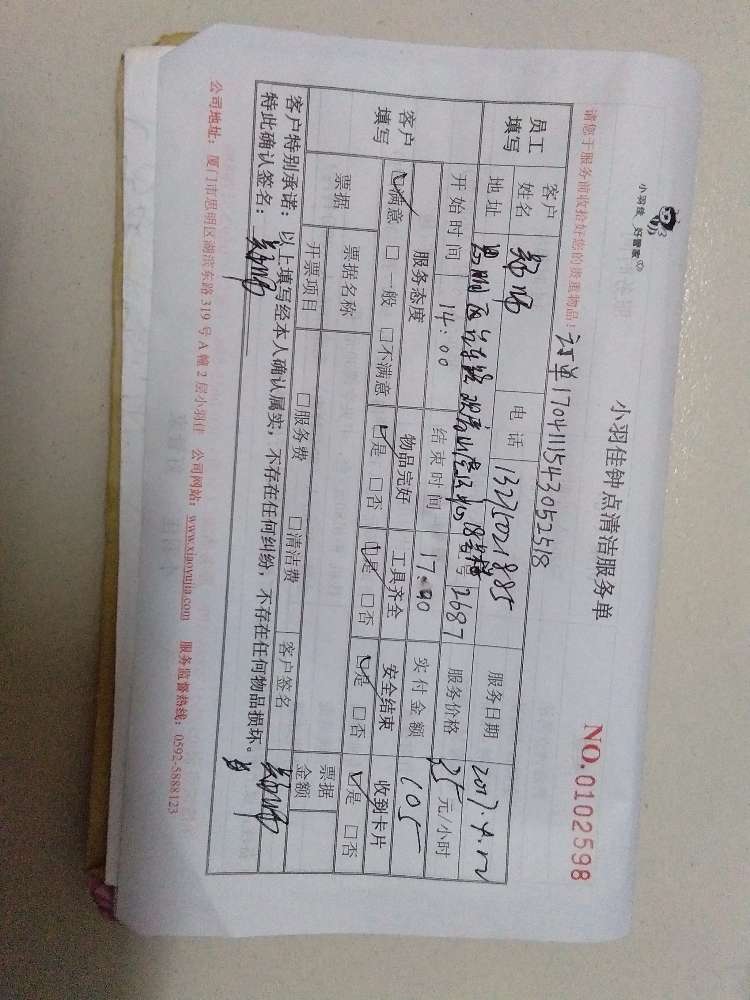 小羽佳 好管家
小羽佳钟点清洁服务单
NO.0102598
请您于服务前收拾好您的贵重物品!
订单170411543052518
员工填写
客户姓名
电话 13225021885
服务日期 2017.4.12
地址
号 2687
服务价格 35元/小时
客户填写
开始时间 14:00
结束时间 17:00
实付金额 105
服务态度
物品完好
工具齐全
安全结束
收到卡片
☑满意 □一般 □不满意
☑是 □否
☑是 □否
☑是 □否
☑是 □否
票据
票据名称
票据金额
开票项目
□服务费 □清洁费
客户签名
客户特别承诺:以上填写经本人确认属实,不存在任何纠纷,不存在任何物品损坏。
特此确认签名:
公司地址:厦门市思明区湖滨东路319号A幢2层小羽佳 公司网站:www.xiaoyujia.com 服务监督热线:0592-5888123